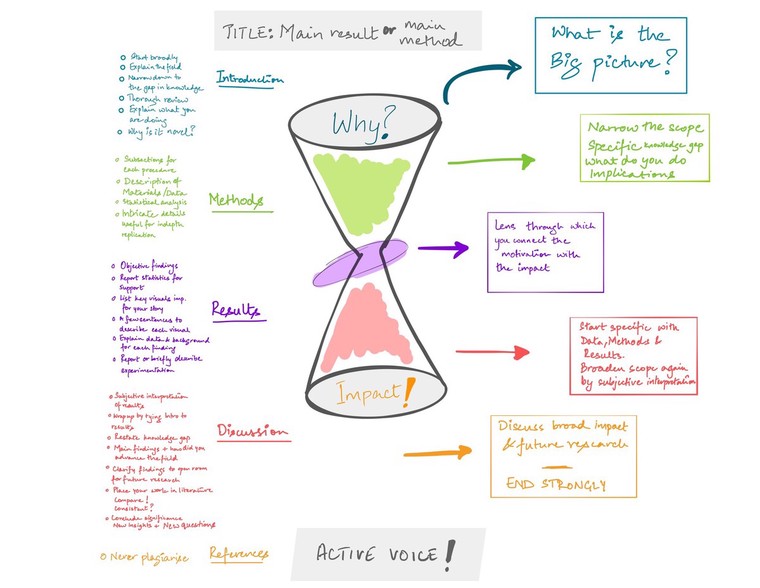 TITLE: Main result or main method
Introduction
Start broadly
Explain the field
Narrow down to
the gap in knowledge
Thorough review
Explain what you
are doing
Why is it novel?
Methods
Subsections for
each procedure
Description of
Materials/Data
Statistical analysis
Intricate details
useful for indepth
replication
Results
Objective findings
Report statistics for
support
List key visuals imp.
for your story
A few sentences to
describe each visual
Explain data & background
for each finding
Report or briefly describe
experimentation
Discussion
Subjective interpretation
of results
Wrap up by tying Intro to
results
Restate knowledge gap
Main findings + how did you
advance the field
Clarify findings to open room
for future research
Place your work in literature
Compare!
Consistent?
Conclude significance
New insights + New questions
References
Never plagiarise
Why?
Impact!
What is the
Big picture?
Narrow the scope
Specific knowledge gap
What do you do
Implications
Lens through which
you connect the
motivation with
the impact
Start specific with
Data, Methods &
Results.
Broaden scope again
by subjective interpretation
Discuss broad impact
& future research
END STRONGLY
ACTIVE VOICE!